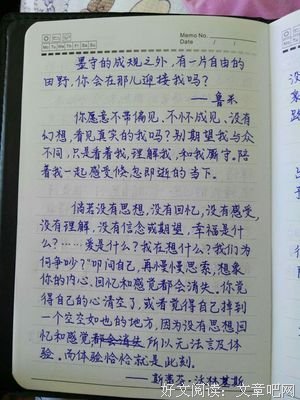 Memo No.
Mo Tu We Th Fr Sa Su
Date / /
墨守的成规之外，有一片自由的
田野，你会在那儿迎接我吗？
——鲁米
你愿意不带偏见，不怀成见，没有
幻想，看见真实的我吗？别期望我与众
不同，只是看着我，理解我，和我厮守。陪
着我一起感受倏忽即逝的当下。
倘若没有思想，没有回忆，没有感受，
没有理解，没有信念或期望，幸福是什
么？……爱是什么？我在想什么？我们为
何争吵？”叩问自己，再慢慢思索，想象
你的内心、回忆和感觉都会消失。你觉
得自己的心清空了，或者觉得自己掉到
一个空空如也的地方，因为没有思想回
忆和感觉都会消失所以无法言及体
验。而体验恰恰就是此刻。
好文阅读：一文章吧网